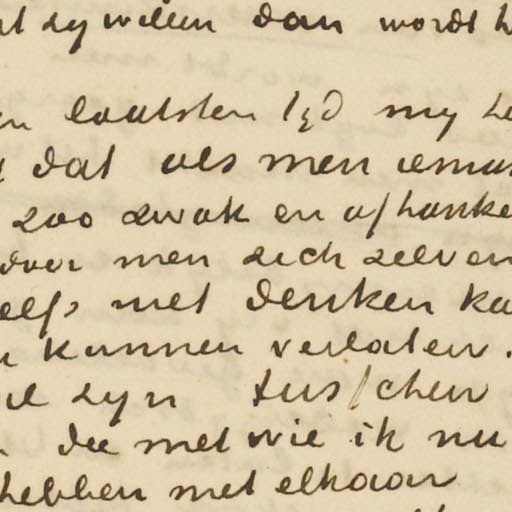 zy willen dan wordt
laatsten tyd my
dat als men
zoo zwak en afhanke
men zich zelven
met denken ka
kunnen verlaten.
zyn tusschen
die met wie ik nu
hebben met elkaar